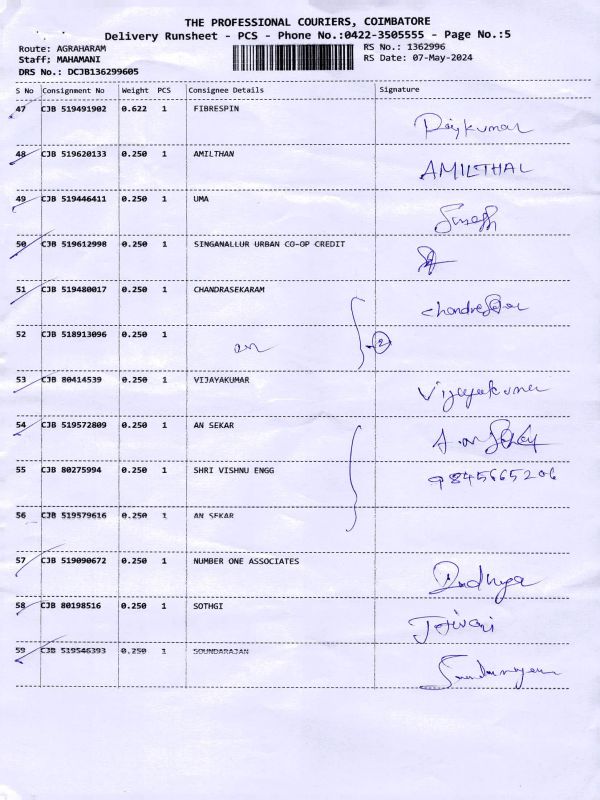 THE PROFESSIONAL COURIERS, COIMBATORE
Delivery Runsheet - PCS - Phone No.:0422-3505555 - Page No.:5
Route: AGRAHARAM
RS No.: 1362996
Staff; MAHAMANI
RS Date: 07-May-2024
DRS No.: DCJB136299605
S No Consignment No Weight PCS Consignee Details Signature
47 CJB 519491902 0.622 1 FIBRESPIN Rajkumar
48 CJB 519620133 0.250 1 AMILTHAN AMILTHAL
49 CJB 519446411 0.250 1 UMA
50 CJB 519612998 0.250 1 SINGANALLUR URBAN CO-OP CREDIT
51 CJB 519480017 0.250 1 CHANDRASEKARAM
52 CJB 518913096 0.250 1 2
53 CJB 80414539 0.250 1 VIJAYAKUMAR Vijayakumar
54 CJB 519572809 0.250 1 AN SEKAR
55 CJB 80275994 0.250 1 SHRI VISHNU ENGG 9845665206
56 CJB 519579616 0.250 1 AN SEKAR
57 CJB 519090672 0.250 1 NUMBER ONE ASSOCIATES
58 CJB 80198516 0.250 1 SOTHGI
59 CJB 519546393 0.250 1 SOUNDARAJAN